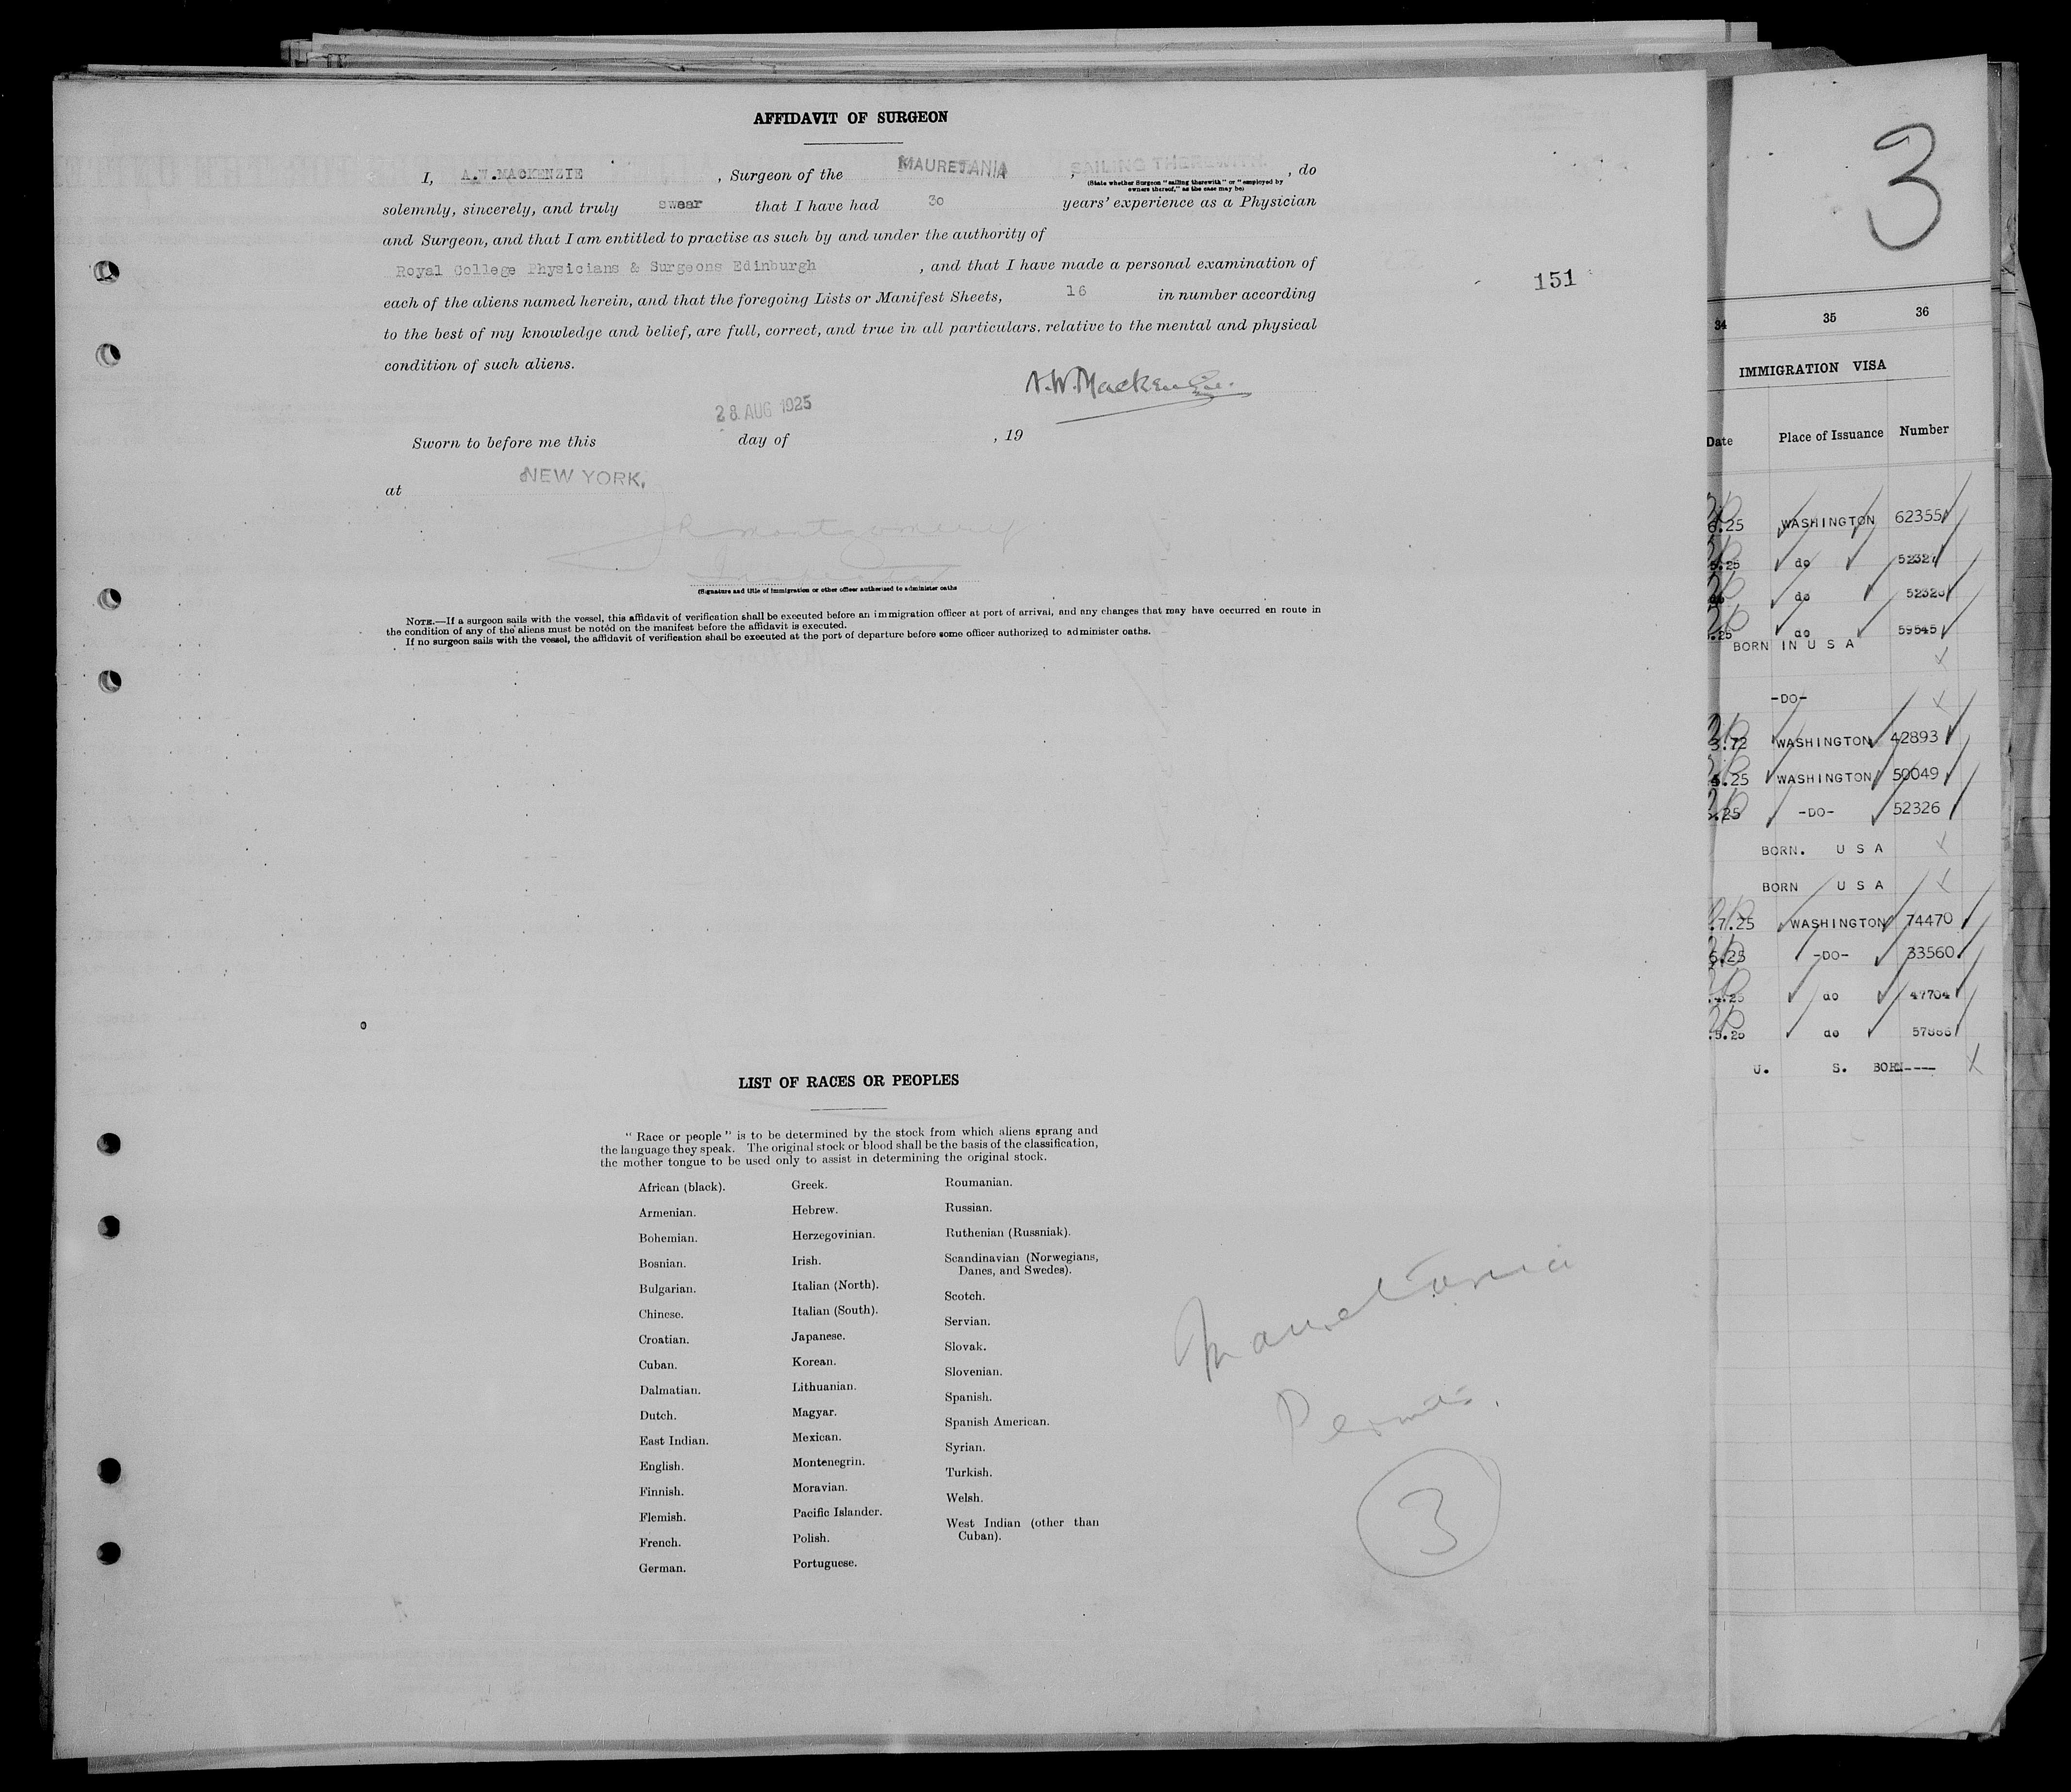 AFFIDAVIT OF SURGEON
I, A.W.MACKENZIE , Surgeon of the MAURETANIA , SAILING THEREWITH. , do
(State whether Surgeon "sailing therewith" or "employed by
owners thereof," as the case may be)
solemnly, sincerely, and truly swear that I have had 30 years' experience as a Physician
and Surgeon, and that I am entitled to practise as such by and under the authority of
Royal College Physicians & Surgeons Edinburgh , and that I have made a personal examination of
each of the aliens named herein, and that the foregoing Lists or Manifest Sheets, 16 in number according
to the best of my knowledge and belief, are full, correct, and true in all particulars. relative to the mental and physical
condition of such aliens.
A.W.Mackenzie.
28 AUG 1925
Sworn to before me this day of , 19
at NEW YORK,
JR Montgomery
Inspector
(Signature and title of immigration or other officer authorised to administer oaths
NOTE.—If a surgeon sails with the vessel, this affidavit of verification shall be executed before an immigration officer at port of arrival, and any changes that may have occurred en route in
the condition of any of the aliens must be noted on the manifest before the affidavit is executed.
If no surgeon sails with the vessel, the affidavit of verification shall be executed at the port of departure before some officer authorized to administer oaths.
151
LIST OF RACES OR PEOPLES
"Race or people" is to be determined by the stock from which aliens sprang and
the language they speak. The original stock or blood shall be the basis of the classification,
the mother tongue to be used only to assist in determining the original stock.
African (black).
Armenian.
Bohemian.
Bosnian.
Bulgarian.
Chinese.
Croatian.
Cuban.
Dalmatian.
Dutch.
East Indian.
English.
Finnish.
Flemish.
French.
German.
Greek.
Hebrew.
Herzegovinian.
Irish.
Italian (North).
Italian (South).
Japanese.
Korean.
Lithuanian.
Magyar.
Mexican.
Montenegrin.
Moravian.
Pacific Islander.
Polish.
Portuguese.
Roumanian.
Russian.
Ruthenian (Russniak).
Scandinavian (Norwegians,
Danes, and Swedes).
Scotch.
Servian.
Slovak.
Slovenian.
Spanish.
Spanish American.
Syrian.
Turkish.
Welsh.
West Indian (other than
Cuban).
Mauretania
Permits.
3
3
34 35 36
IMMIGRATION VISA
Date Place of Issuance Number
6.25 WASHINGTON 62355
5.25 do 52327
do do
.25 do 59545
BORN IN U S A
-DO-
3.72 WASHINGTON 42893
4.25 WASHINGTON 50049
5.25 -DO- 52326
BORN. U S A
BORN U S A
.7.25 WASHINGTON 74470
6.25 -DO- 33560
.4.25 do 47704
.5.25 do
U. S. BORN----